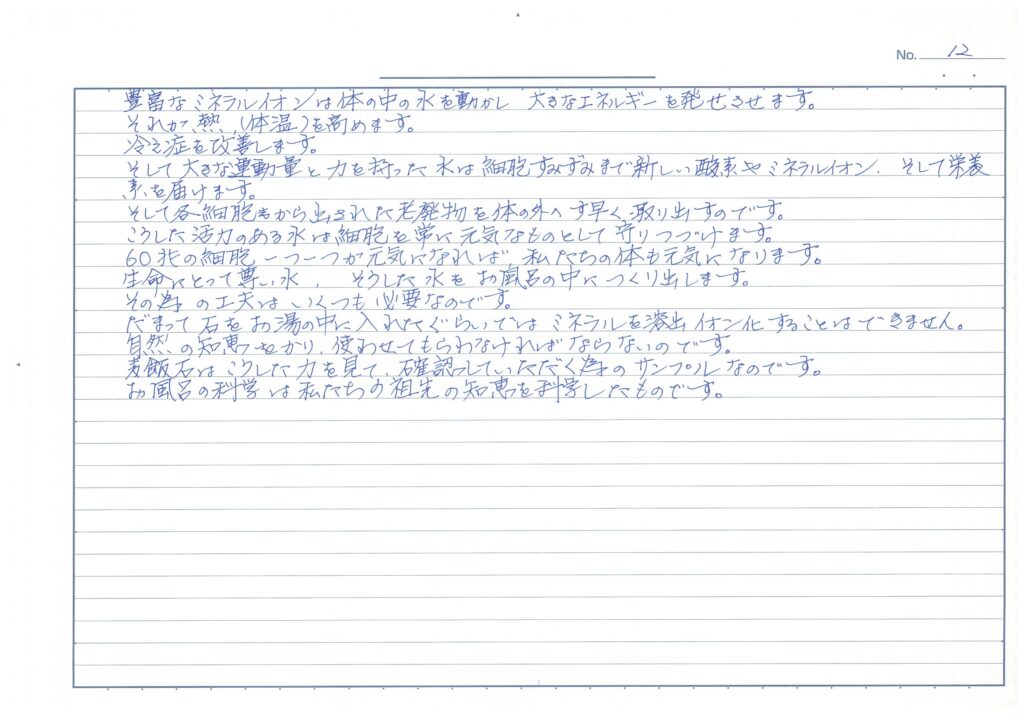 No. 12
豊富なミネラルイオンは体の中の水を動かし 大きなエネルギーを発せさせます。
それが熱、(体温)を高めます。
冷え症を改善します。
そして大きな運動量と力を持った水は細胞すみずみまで新しい酸素やミネラルイオン、そして栄養
素を届けます。
そして各細胞から出された老廃物を体の外へす早く取り出すのです。
こうした活力のある水は細胞を常に元気なものとして守りつづけます。
60兆の細胞一つ一つが元気になれば、私たちの体も元気になります。
生命にとって尊い水、そうした水をお風呂の中につくり出します。
その為の工夫はいくつも必要なのです。
だまって石をお湯の中に入れたぐらいではミネラルを溶出イオン化することはできません。
自然の知恵をかり、使わせてもらわなければならないのです。
麦飯石はこうした力を見て、確認していただく為のサンプルなのです。
お風呂の科学は私たちの祖先の知恵を科学したものです。